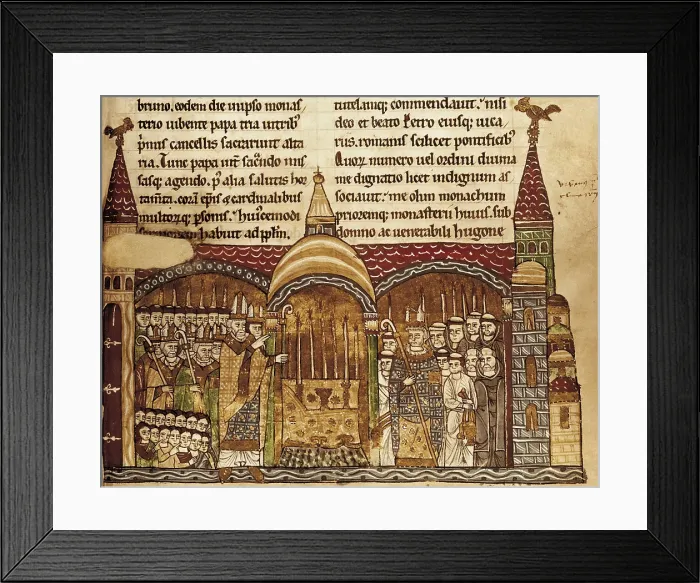 bruno. eodem die in ipso monas
terio iubente papa tria in trib᷒
pͥmis cancellis sacrarunt alta
ria. Tunc papa int̄ sac̄ndo mis
sasq; agendo. p᷒ alia salutis hor
tam̄ta. corā ep̄is & cardinalibus
multorq; p̄sonis. huiscemodi
habuit ad pp̄lm.
tutelamq; commendauit. nisi
deo et beato petro eiusq; uica
riis. romanis scilicet pontificib᷒
Quoꝝ numero uel ordini diuina
me dignatio licet indignum as
sociauit. me olim monachum
prioremq; monasterii huius. sub
domno ac uenerabili hugone